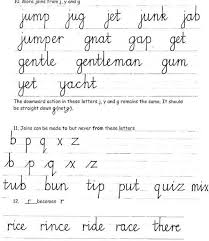 10. More joins from j, y and g
jump jug jet junk jab
jumper gnat gap get
gentle gentleman gum
get yacht
The downward action in these letters j, y and g remains the same. It should
be straight down g (not g).
11. Joins can be made to but never from these letters
b p q x z
b p q x z
tub bun tip put quiz mix
12. r becomes r
rice rince ride race there